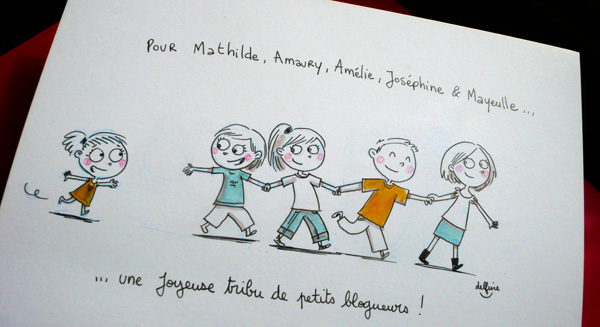 Pour Mathilde, Amaury, Amélie, Joséphine & Mayeulle...
... une joyeuse tribu de petits blogueurs !
delfine